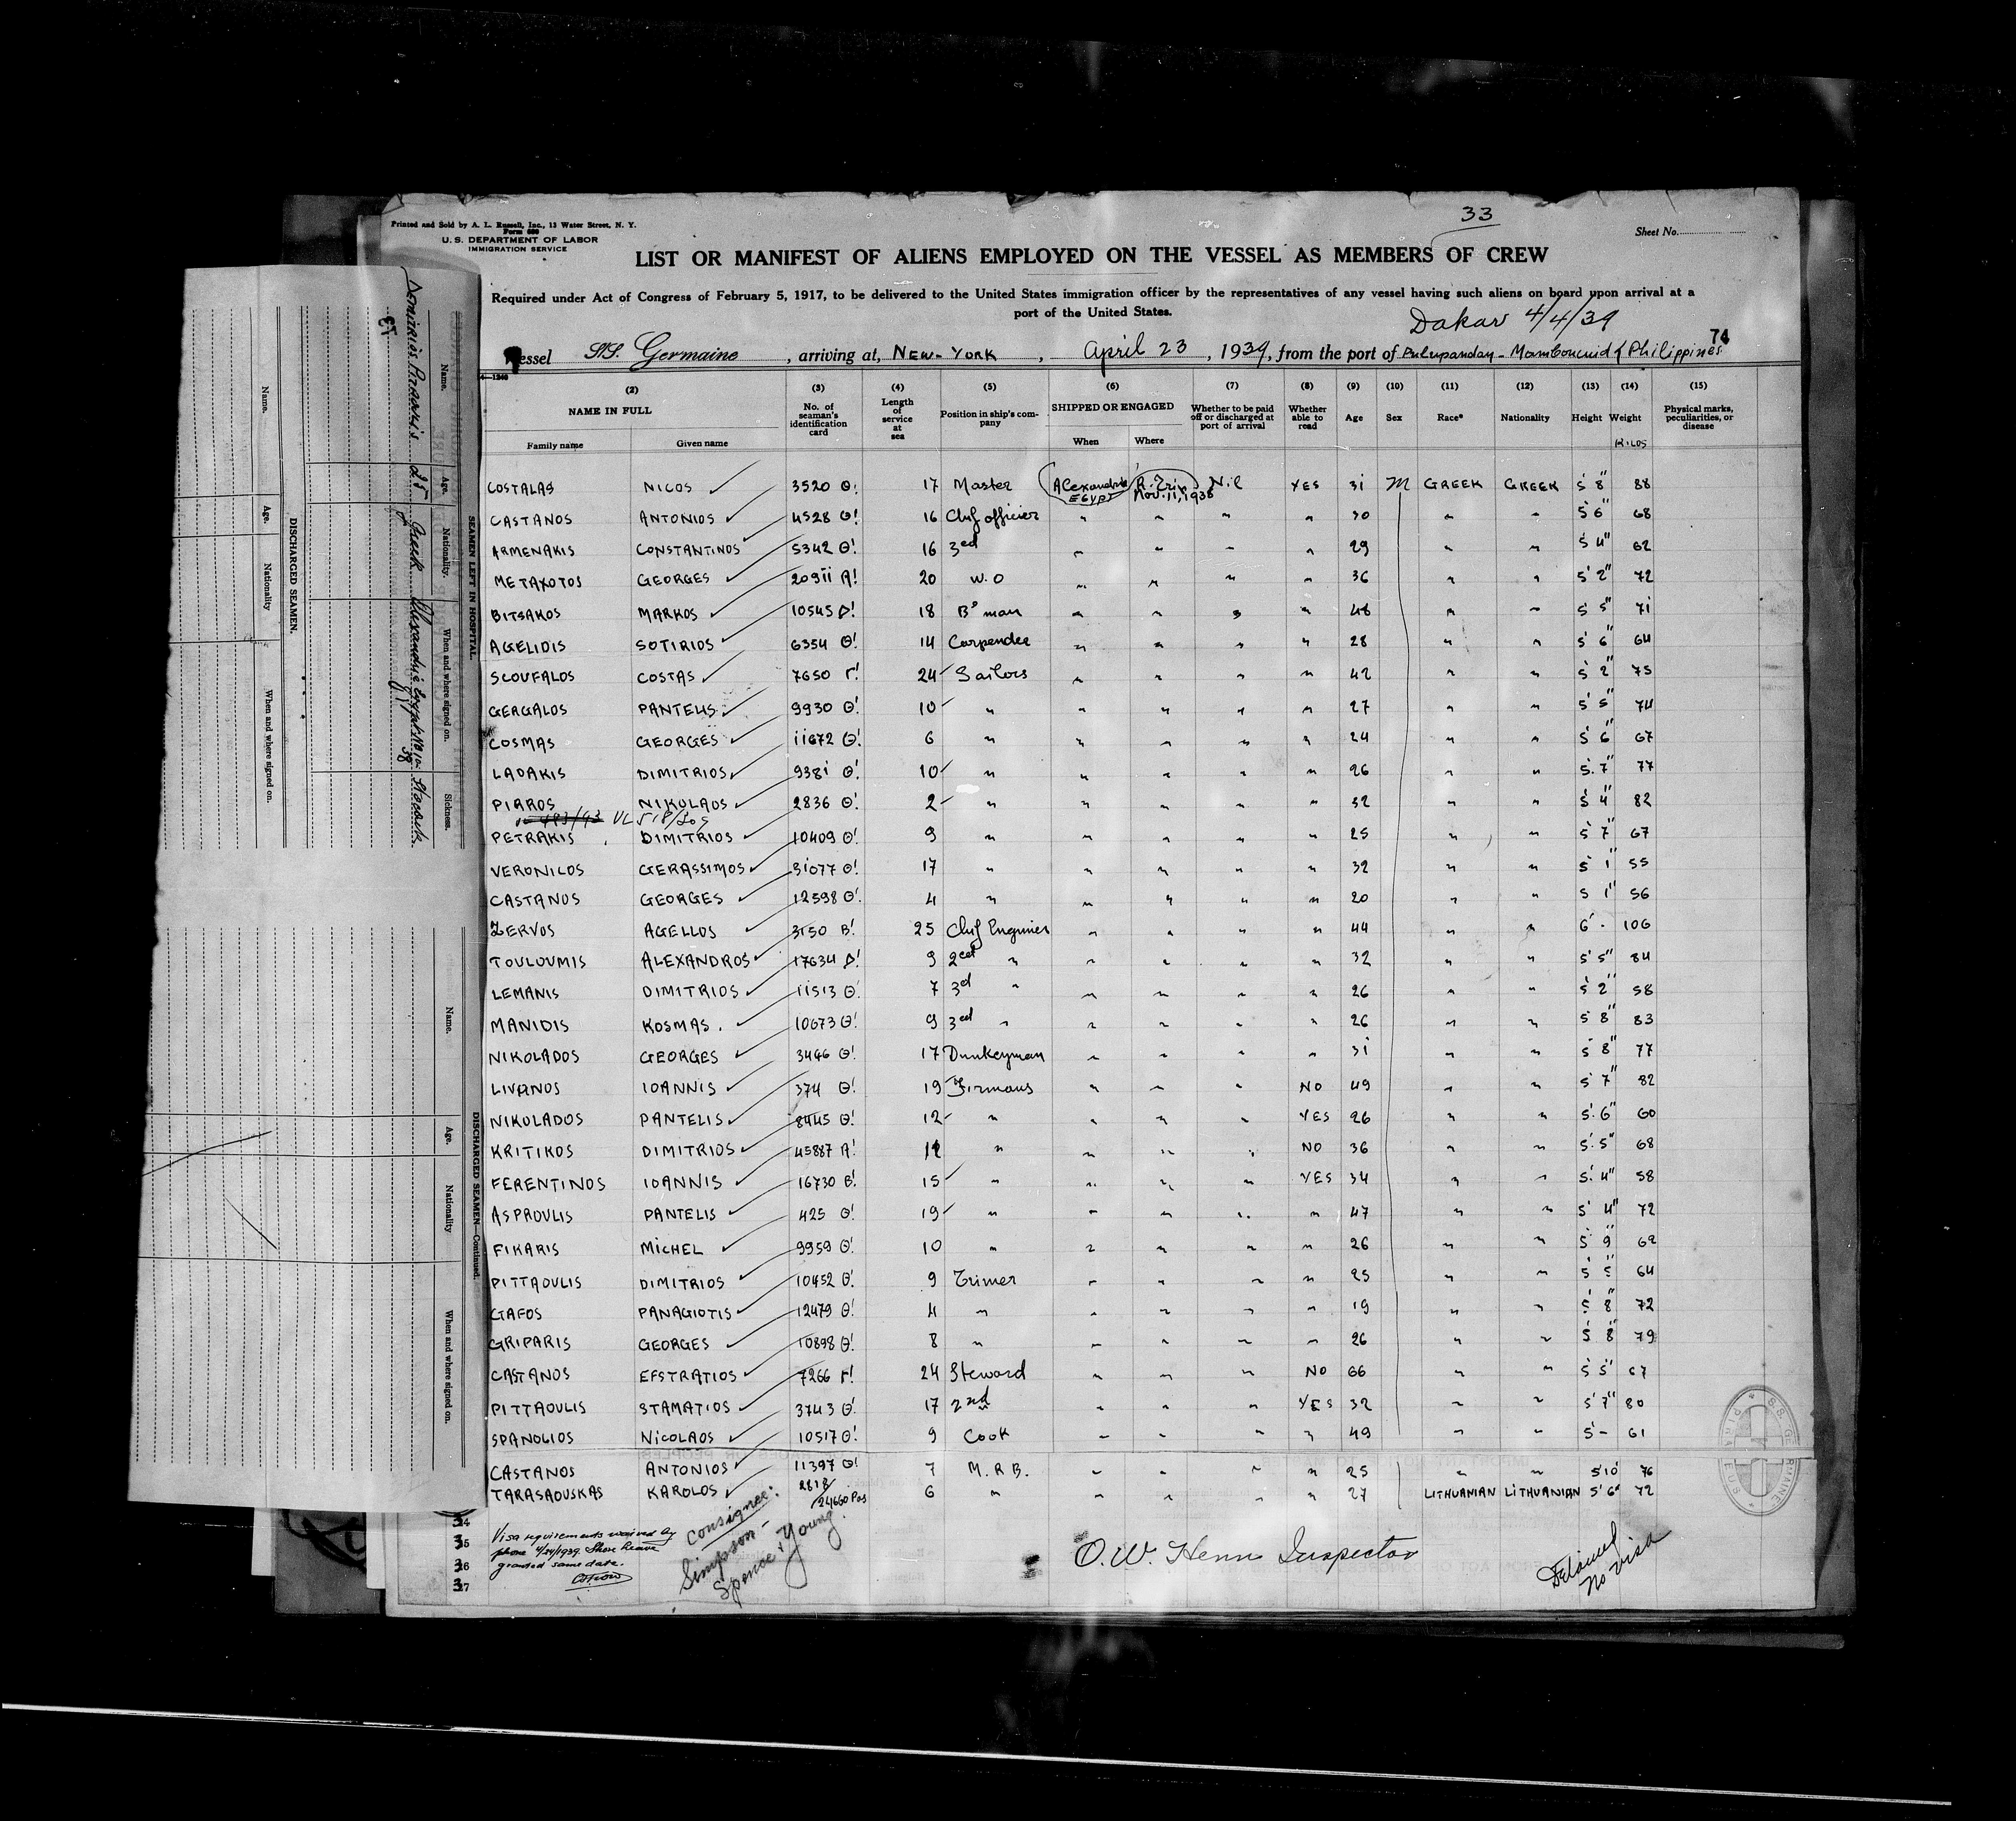 33
Printed and Sold by A. L. Russell, Inc., 13 Water Street, N. Y.
Form 680
U. S. DEPARTMENT OF LABOR
IMMIGRATION SERVICE
Sheet No.
LIST OR MANIFEST OF ALIENS EMPLOYED ON THE VESSEL AS MEMBERS OF CREW
Required under Act of Congress of February 5, 1917, to be delivered to the United States immigration officer by the representatives of any vessel having such aliens on board upon arrival at a
port of the United States.
Dakar 4/4/39
74
Vessel S/S. Germaine, arriving at, NEW-YORK, April 23, 1939, from the port of Philippines
(2) (3) (4) (5) (6) (7) (8) (9) (10) (11) (12) (13) (14) (15)
NAME IN FULL No. of seaman's identification card Length of service at sea Position in ship's company SHIPPED OR ENGAGED Whether to be paid off or discharged at port of arrival Whether able to read Age Sex Race* Nationality Height Weight Physical marks, peculiarities, or disease
Family name Given name When Where KILOS
COSTALAS NICOS 3520 Θ! 17 Master Alexandria EGYPT Nov. 11, 1938 Nil YES 31 M GREEK GREEK 5 8" 88
CASTANOS ANTONIOS 4528 Θ! 16 Chif officier " " " " 30 " " 5 6" 68
ARMENAKIS CONSTANTINOS 5342 Θ! 16 3ed " " " " 29 " " 5 4" 62
METAXOTOS GEORGES 20911 A! 20 W.O " " " " 36 " " 5' 2" 72
BITSAKOS MARKOS 10545 Δ! 18 B'man " " " " 48 " " 5 5" 71
AGELIDIS SOTIRIOS 6354 Θ! 14 Carpender " " " " 28 " " 5' 6" 64
SCOUFALOS COSTAS 7650 Γ! 24 Sailors " " " " 42 " " 5 2" 75
GERGALOS PANTELIS 9930 Θ! 10 " " " " " 27 " " 5' 5" 74
COSMAS GEORGES 11672 Θ! 6 " " " " " 24 " " 5' 6" 67
LADAKIS DIMITRIOS 9381 Θ! 10 " " " " " 26 " " 5. 7" 77
PIRROS NIKOLAOS 2836 Θ! 2 " " " " " 32 " " 5 4" 82
PETRAKIS DIMITRIOS 10409 Θ! 9 " " " " " 25 " " 5' 7" 67
VERONILOS GERASSIMOS 31077 Θ! 17 " " " " " 32 " " 5 1" 55
CASTANOS GEORGES 12598 Θ! 4 " " " " " 20 " " 5 1" 56
ZERVOS AGELLOS 3150 B! 25 Chif Enginier " " " " 44 " " 6' - 106
TOULOUMIS ALEXANDROS 17634 Δ! 9 2ed " " " " " 32 " " 5' 5" 84
LEMANIS DIMITRIOS 11513 Θ! 7 3d " " " " " 26 " " 5 2" 58
MANIDIS KOSMAS. 10673 Θ! 9 3ed " " " " " 26 " " 5 8" 83
NIKOLADOS GEORGES 3446 Θ! 17 Dunkeyman " " " " 31 " " 5 8" 77
LIVANOS IOANNIS 374 Θ! 19 Firmans " " " NO 49 " " 5 7" 82
NIKOLADOS PANTELIS 8445 Θ! 12 " " " " YES 26 " " 5'. 6" 60
KRITIKOS DIMITRIOS 45887 A! 12 " " " " NO 36 " " 5'. 5" 68
FERENTINOS IOANNIS 16730 B! 15 " " " " YES 34 " " 5'. 4" 58
ASPROULIS PANTELIS 425 Θ! 19 " " " " " 47 " " 5' 4" 72
FIKARIS MICHEL 9959 Θ! 10 " " " " " 26 " " 5 9" 69
PITTAOULIS DIMITRIOS 10452 Θ! 9 Trimer " " " " 25 " " 5 5" 64
GAFOS PANAGIOTIS 12479 Θ! 4 " " " " " 19 " " 5 8" 72
GRIPARIS GEORGES 10898 Θ! 8 " " " " " 26 " " 5 8" 79
CASTANOS EFSTRATIOS 7266 Γ! 24 Steward " " " NO 66 " " 5 5' 67
PITTAOULIS STAMATIOS 3743 Θ! 17 2nd " " " YES 32 " " 5' 7" 80
SPANOLIOS NICOLAOS 10517 Θ! 9 Cook " " " " 49 " " 5' - 61
CASTANOS ANTONIOS 11397 Θ! 7 M.R B. " " " " 25 " " 5'10 76
TARASAOUSKAS KAROLOS 2818/24660 Pas 6 " " " " " 27 LITHUANIAN LITHUANIAN 5' 6" 72
34
35
36
37
Visa requirements waived by
phone 4/24/1939. Shore Leave
granted same date.
Consignee:
Simpson -
Spence & Young
O. W. Henn Inspector
Detained
no visa
SEAMEN LEFT IN HOSPITAL.
Name. Age. Nationality. When and where signed on. Sickness.
25 Greek Alexandria Egypt Stomach
DISCHARGED SEAMEN.
Name. Age. Nationality When and where signed on.
DISCHARGED SEAMEN—Continued.
Name. Age. Nationality When and where signed on.